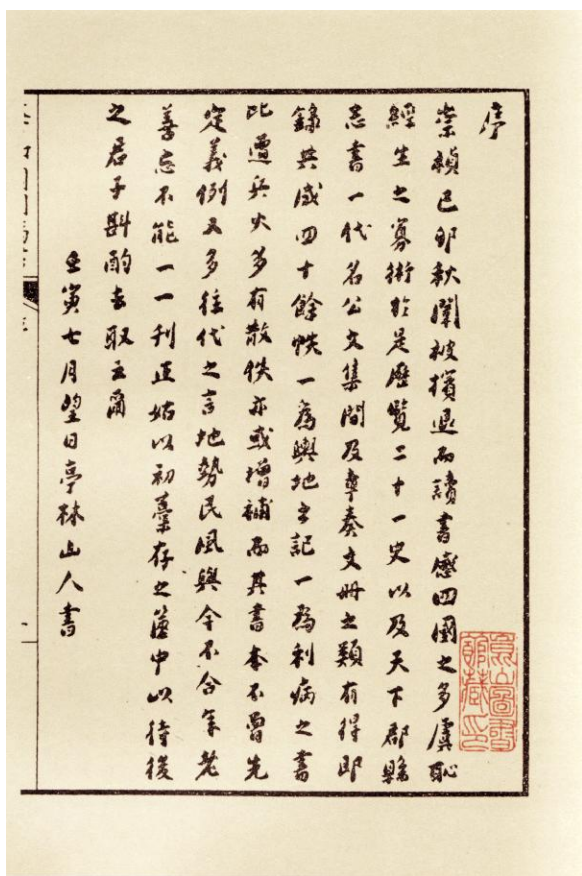 序
崇禎己卯秋闈被擯退而讀書感四國之多虞恥
經生之寡術於是歷覽二十一史以及天下郡縣
志書一代名公文集間及章奏文冊之類有得即
錄共成四十餘帙一爲輿地之記一爲利病之書
比遭兵火多有散佚亦或增補而其書本不曾先
定義例又多往代之言地勢民風與今不合年老
善忘不能一一刊正姑以初藁存之篋中以待後
之君子斟酌去取云爾
壬寅七月望日亭林山人書
昆山圖書
館藏印